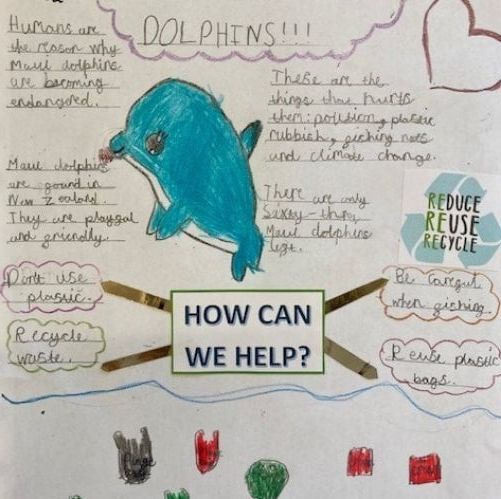 DOLPHINS!!!
Humans are
the reason why
Maui dolphins
are becoming
endangered.
These are the
things that hurts
them: pollution, plastic
rubbish, fishing nets
and climate change.
Maui dolphins
are found in
New Zealand.
They are playful
and friendly.
There are only
sixty-three
Maui dolphins
left.
REDUCE
REUSE
RECYCLE
Don't use
plastic.
Recycle
waste.
HOW CAN
WE HELP?
Be careful
when fishing.
Reuse plastic
bags.